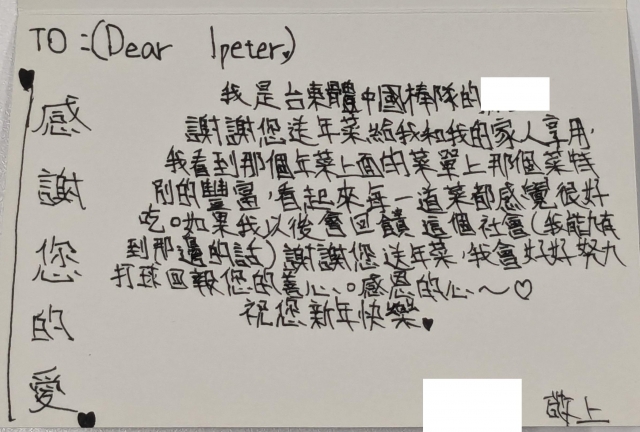 TO:(Dear Ipeter,)
感謝您的愛
我是台東體中國棒隊的
謝謝您送年菜給我和我的家人享用,
我看到那個年菜上面的菜單上那個菜特
別的豐富,看起來每一道菜都感覺很好
吃。如果我以後會回饋這個社會(我能力有
到那邊的話)謝謝您送年菜,我會好好努力
打球回報您的善心、。感恩的心~♡
祝您新年快樂♥
敬上